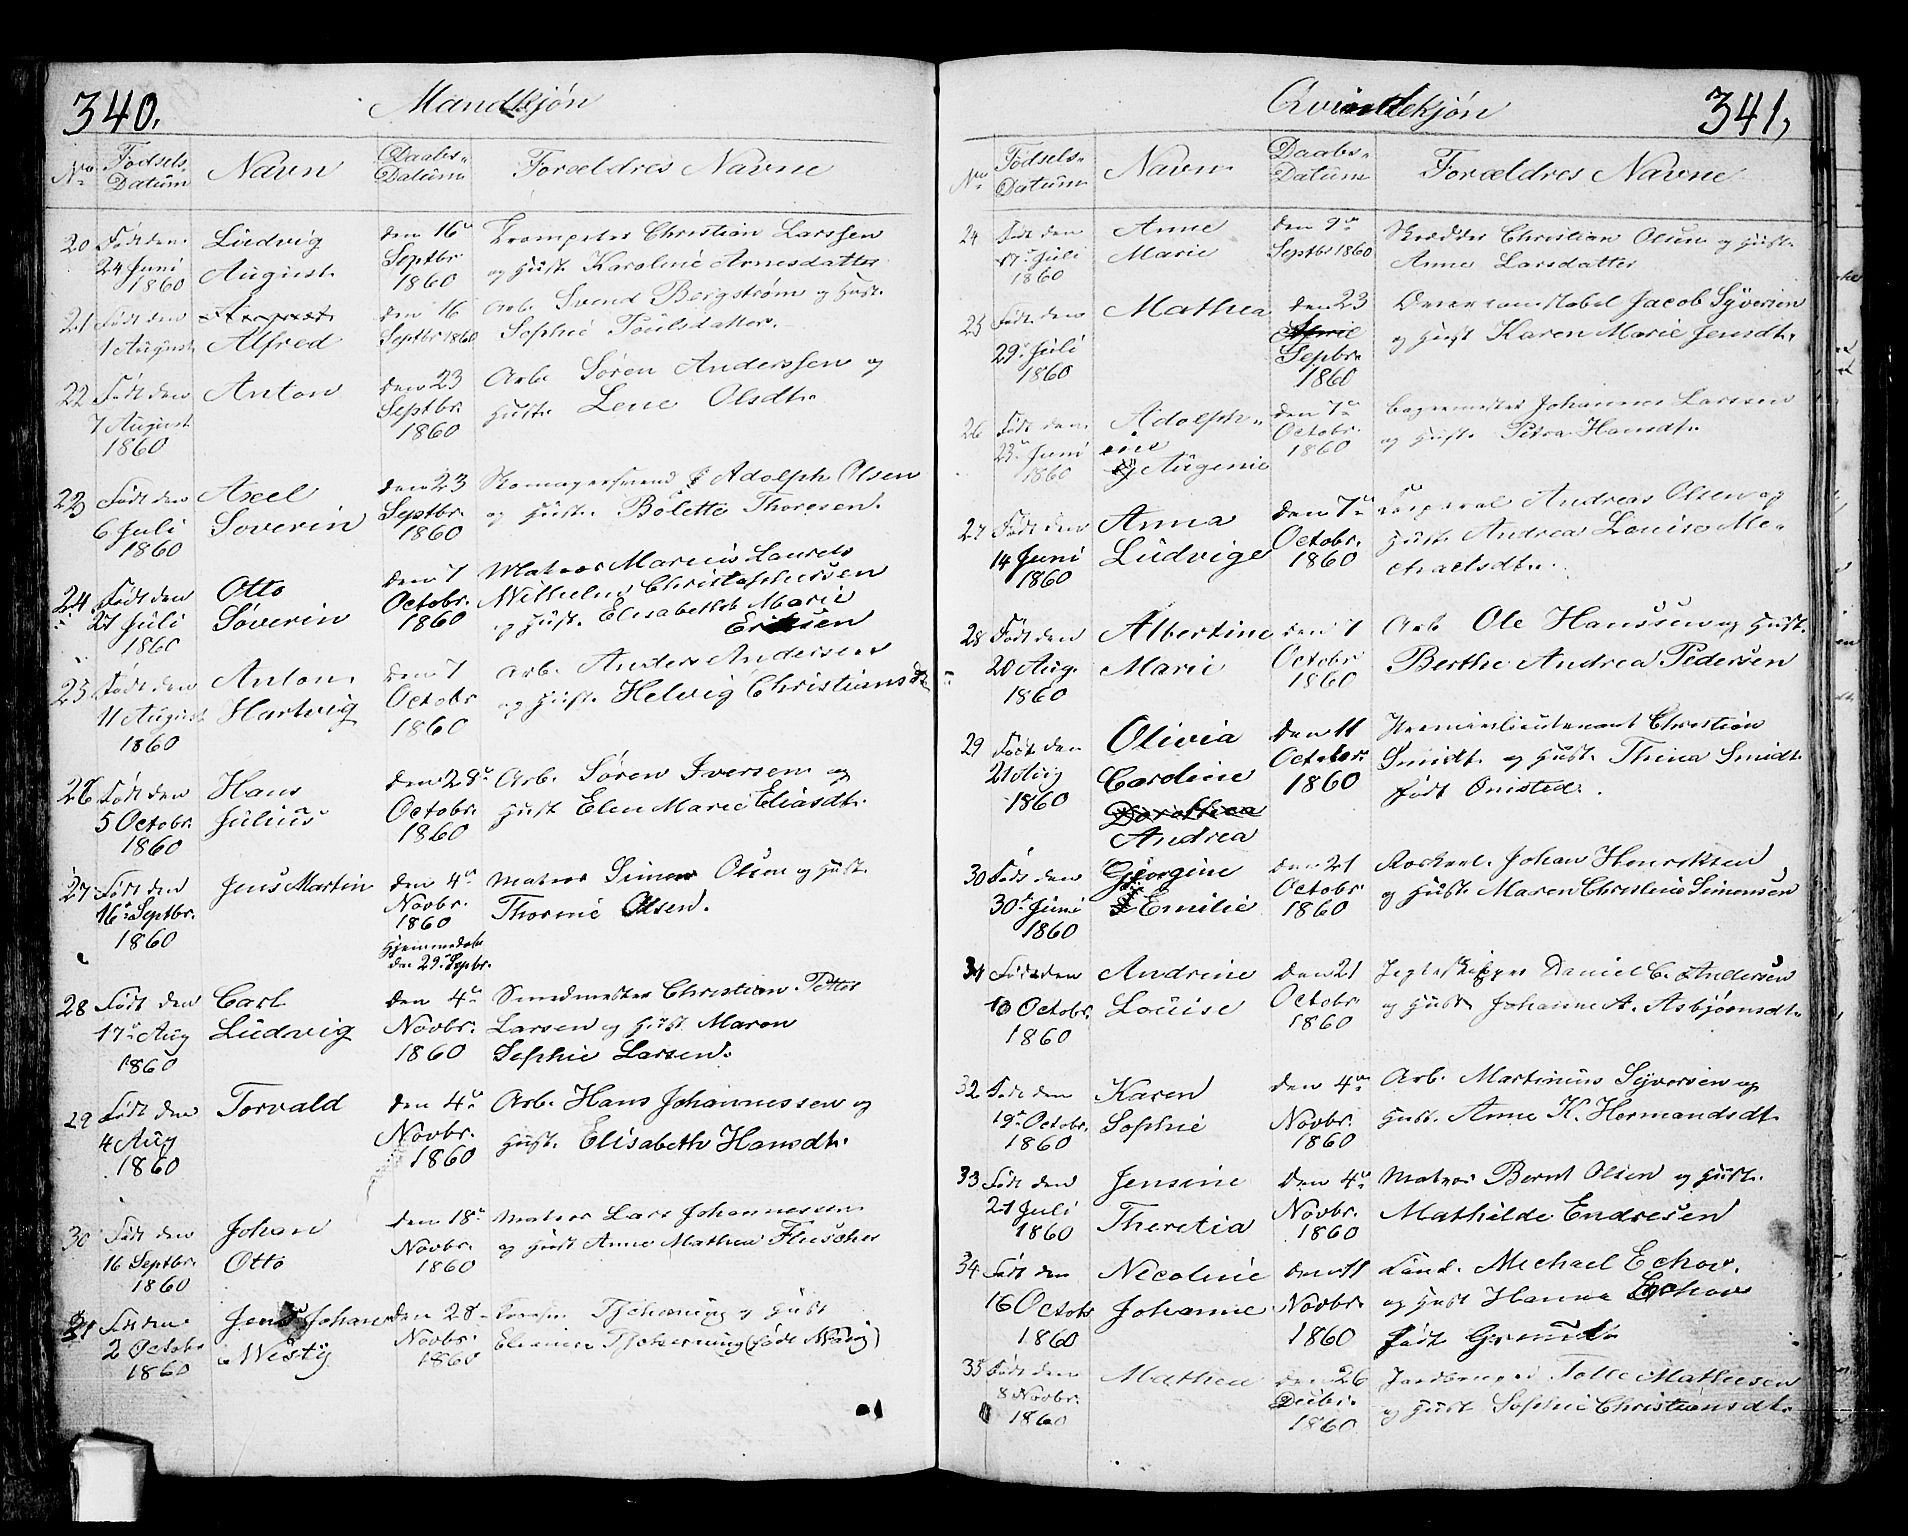 340.
Mandkjøn
No
Fødsels
Datum
Navn
Daabs-
Datum
Forældres Navne
20 Født den
24 Juni
1860
Ludvig
August
den 16de
Septbr
1860
Trompeter Christian Larssen
og Hust. Karoline Arnesdatter
21 Født den
1 August
Alfred
den 16
Septbr 1860
Arb. Svend Bergstrøm og Hust.
Sophie Poulsdatter.
22 Født den
7 August
1860
Anton
den 23
Septbr.
1860
Arb. Søren Anderssen og
Hust. Lene Olsdt.
23 Født den
6 Juli
1860
Axel
Soverin
den 23
Septbr.
1860
Skomagersvend Adolph Olsen
og Hust. Bolette Thoresen.
24 Født den
27 Juli
1860
Otto
Søverin
den 7
Octobr.
1860
Matros Marcus Laurets
Wilhelm Christophersen
og Hust. Elisabeth Marie
Eriksen
25 Født den
11 August
1860
Anton
Hartvig
den 7
Octobr
1860
Arb. Anders Andersen
og Hust. Helvig Christiansdt.
26 Født den
5 Octobr.
1860
Hans
Julius
den 28de
Octobr.
1860
Arb. Søren Iversen og
Hust Elen Marie Eliasdt.
27 Født den
16de Septbr.
1860
Jens Martin
den 4de
Novbr.
1860
Hjemmedøbt
den 29 Septbr.
Matros Simen Olsen og Hust.
Thorine Olsen.
28 Født den
17de Aug
1860
Carl
Ludvig
den 4de
Novbr.
1860
Smedmester Christian Petter
Larsen og Hust. Maren
Sophie Larsen.
29 Født den
4 Aug
1860
Torvald
den 4de
Novbr.
1860
Arb. Hans Johannessen og
Hust. Elisabeth Hansdt.
30 Født den
16 Septbr.
1860
Johan
Otto
den 18de
Novbr.
1860
Matros Lars Johannessen
og Hust Anne Mathea
31 Født den
2 Octobr
1860
Jens Johan
Westy
den 28
Novbr.
1860
Tscherning og Hust
Tscherning (født Westby)
341,
Qvindekjøn
No
Fødsels-
Datum
Navn
Daabs-
Datum
Forældres Navne
24 Født den
17 Juli
1860
Anne
Marie
den 9de
Septbr 1860
Skrædder Christian Olsen og Hust.
Anne Larsdatter
25 Født den
29 Juli
1860
Mathea
den 23
April
Septbr.
1860
Overconstabel Jacob Syversen
og Hust Karen Marie Jensdt.
26 Født den
23 Juni
1860
Adolph-
ine
og Augenie
den 7de
Octobr.
1860
Bagermester Johannes Larssen
og Hust. Petra Hansdt.
27 Født den
14 Juni
1860
Anna
Ludvige
den 7de
Octobr.
1860
Corporal Andreas Olsen og
Hust. Andrea Louise Mi-
chaelsdt.
28 Født den
20 Aug.
1860
Albertine
Marie
den 7
Octobr
1860
Arb. Ole Hanssen og Hust.
Berthe Andrea Pedersen
29 Født den
21 Aug
1860
Olivia
Caroline
Dorothea
Andrea
den 11
October
1860
Premierlieutenant Christian
Smidt og Hust. Thina Smidt
født Onsted.
30 Født den
30 Juni
1860
Georgine
Emilie
den 21
Octobr
1860
Johan Henriksen
og Hust. Maren Christine Simensen
31 Født den
10 Octobr.
1860
Andrine
Louise
den 21
Octobr
1860
Jagteskipper Daniel C. Andersen
og Hust Johanne A. Asbjørnsdt.
32 Født den
19de Octobr.
1860
Karen
Sophie
den 4de
Novbr.
1860
Arb. Martinius Syversen og
Hust. Anne K. Hermandsdt.
33 Født den
21 Juli
1860
Jensine
Theretia
den 4de
Novbr.
1860
Matros Bernt Olsen og Hust.
Mathilde Endresen
34 Født den
16 Octobr
1860
Nicoline
Johanne
den 11
Novbr.
1860
Cand. Michael Echov.
og Hust Hanna Echov
født
35 Født den
8 Novbr.
1860
Mathea
den 26
Decbr.
1860
Jordbruger Tolle Mathiesen
og Hust Sophie Christiansdt.